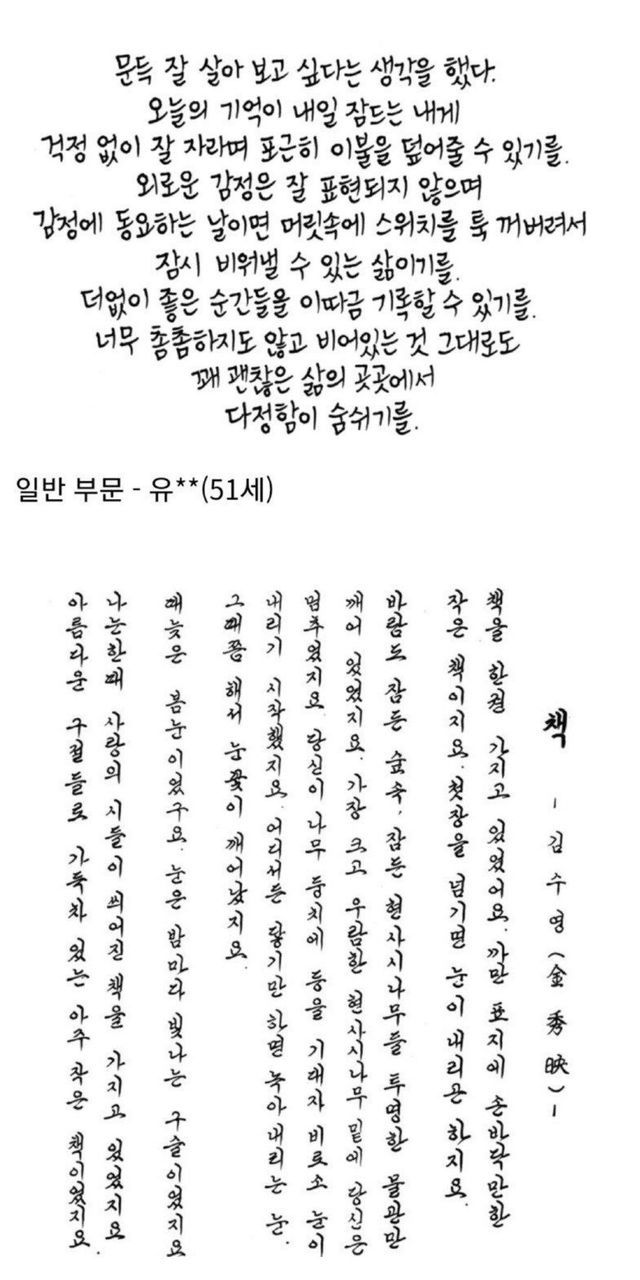 문득 잘 살아 보고 싶다는 생각을 했다.
오늘의 기억이 내일 잠드는 내게
걱정 없이 잘 자라며 포근히 이불을 덮어줄 수 있기를.
외로운 감정은 잘 표현되지 않으며
감정에 동요하는 날이면 머릿속에 스위치를 툭 꺼버려서
잠시 비워낼 수 있는 삶이기를.
더없이 좋은 순간들을 이따금 기록할 수 있기를.
너무 촘촘하지도 않고 비어있는 것 그대로도
꽤 괜찮은 삶의 곳곳에서
다정함이 숨쉬기를.
일반 부문 - 유**(51세)
책 - 김수영(金秀映) -
책을 한권 가지고 있었어요. 까만 표지에 손바닥만한
작은 책이지요. 첫장을 넘기면 눈이 내리곤 하지요.
바람도 잠든 숲속, 잠든 현사시나무들 투명한 물관만
깨어 있었지요. 가장 크고 우람한 현사시나무 밑에 당신은
멈추었지요. 당신이 나무 둥치에 등을 기대자 비로소 눈이
내리기 시작했지요. 어리서든 닿기만 하면 녹아내리는 눈.
그때쯤 해서 눈꽃이 깨어났지요.
때늦은 봄눈이었구요. 눈은 밤마다 빛나는 구슬이었지요
나는한때 사랑의 시들이 씌어진 책을 가지고 있었지요
아름다운 구절들로 가득차 있는 아주 작은 책이었지요.